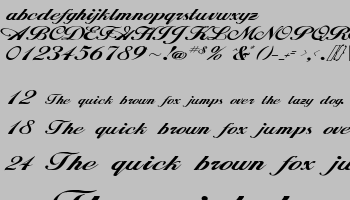 abcdefghijklmnopqrstuvwxyz
ABCDEFGHIJKLMNOPQR
0123456789
12 The quick brown fox jumps over the lazy dog.
18 The quick brown fox jumps ove
24 The quick brown fox ju